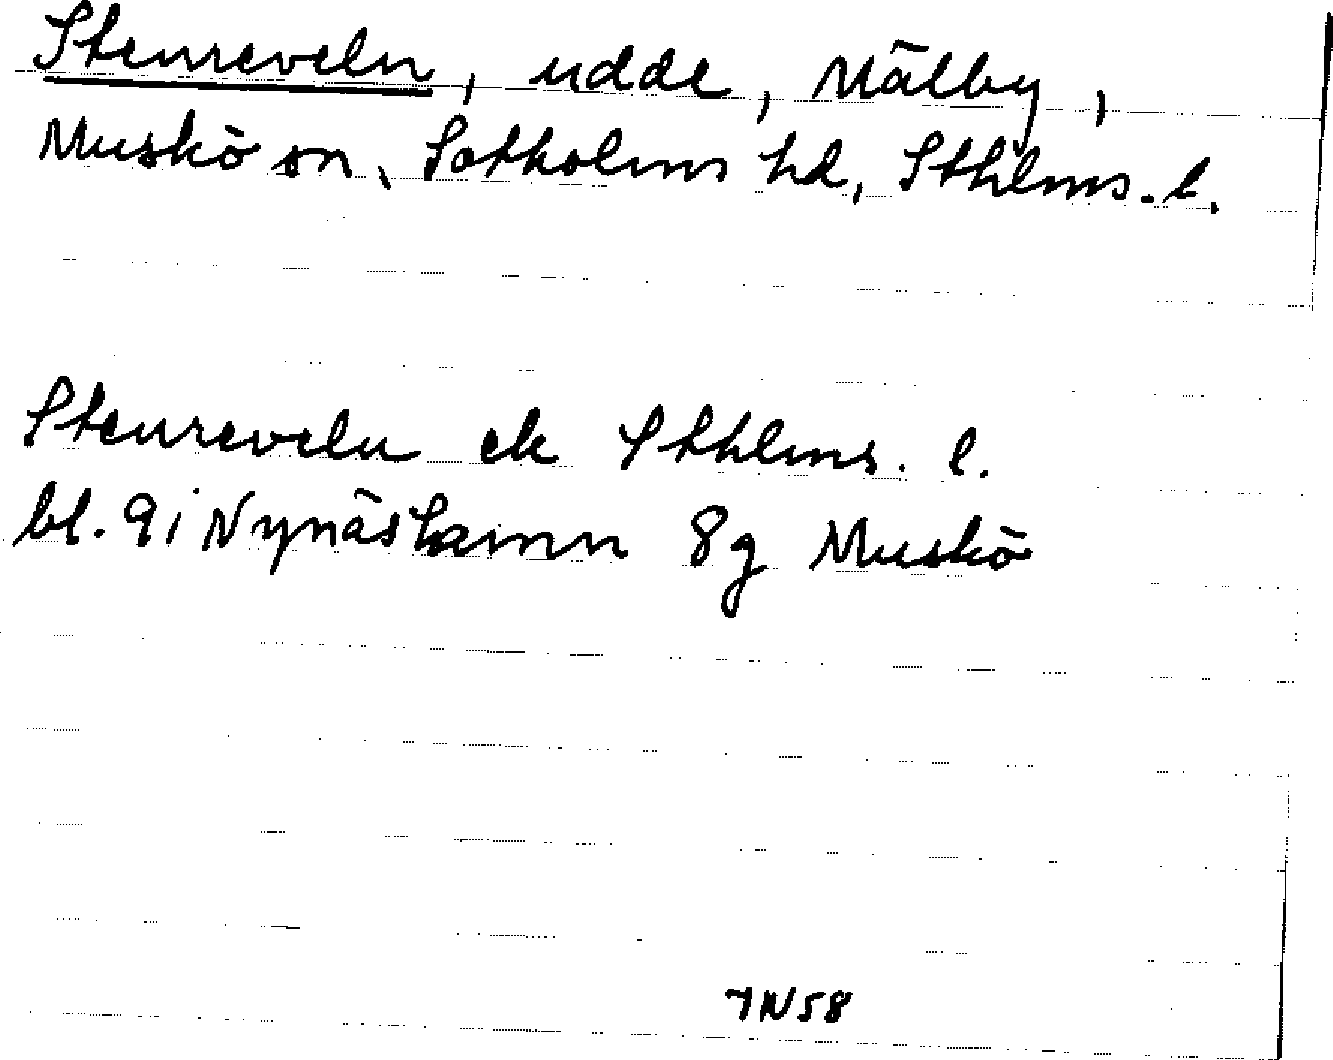 Stenreveln, udde, Mälby,
Muskö sn, Sotholms hd, Sthlms. l.
Stenreveln ek Sthlms. l.
bl. 9i Nynäshamn 8g Muskö
7N58